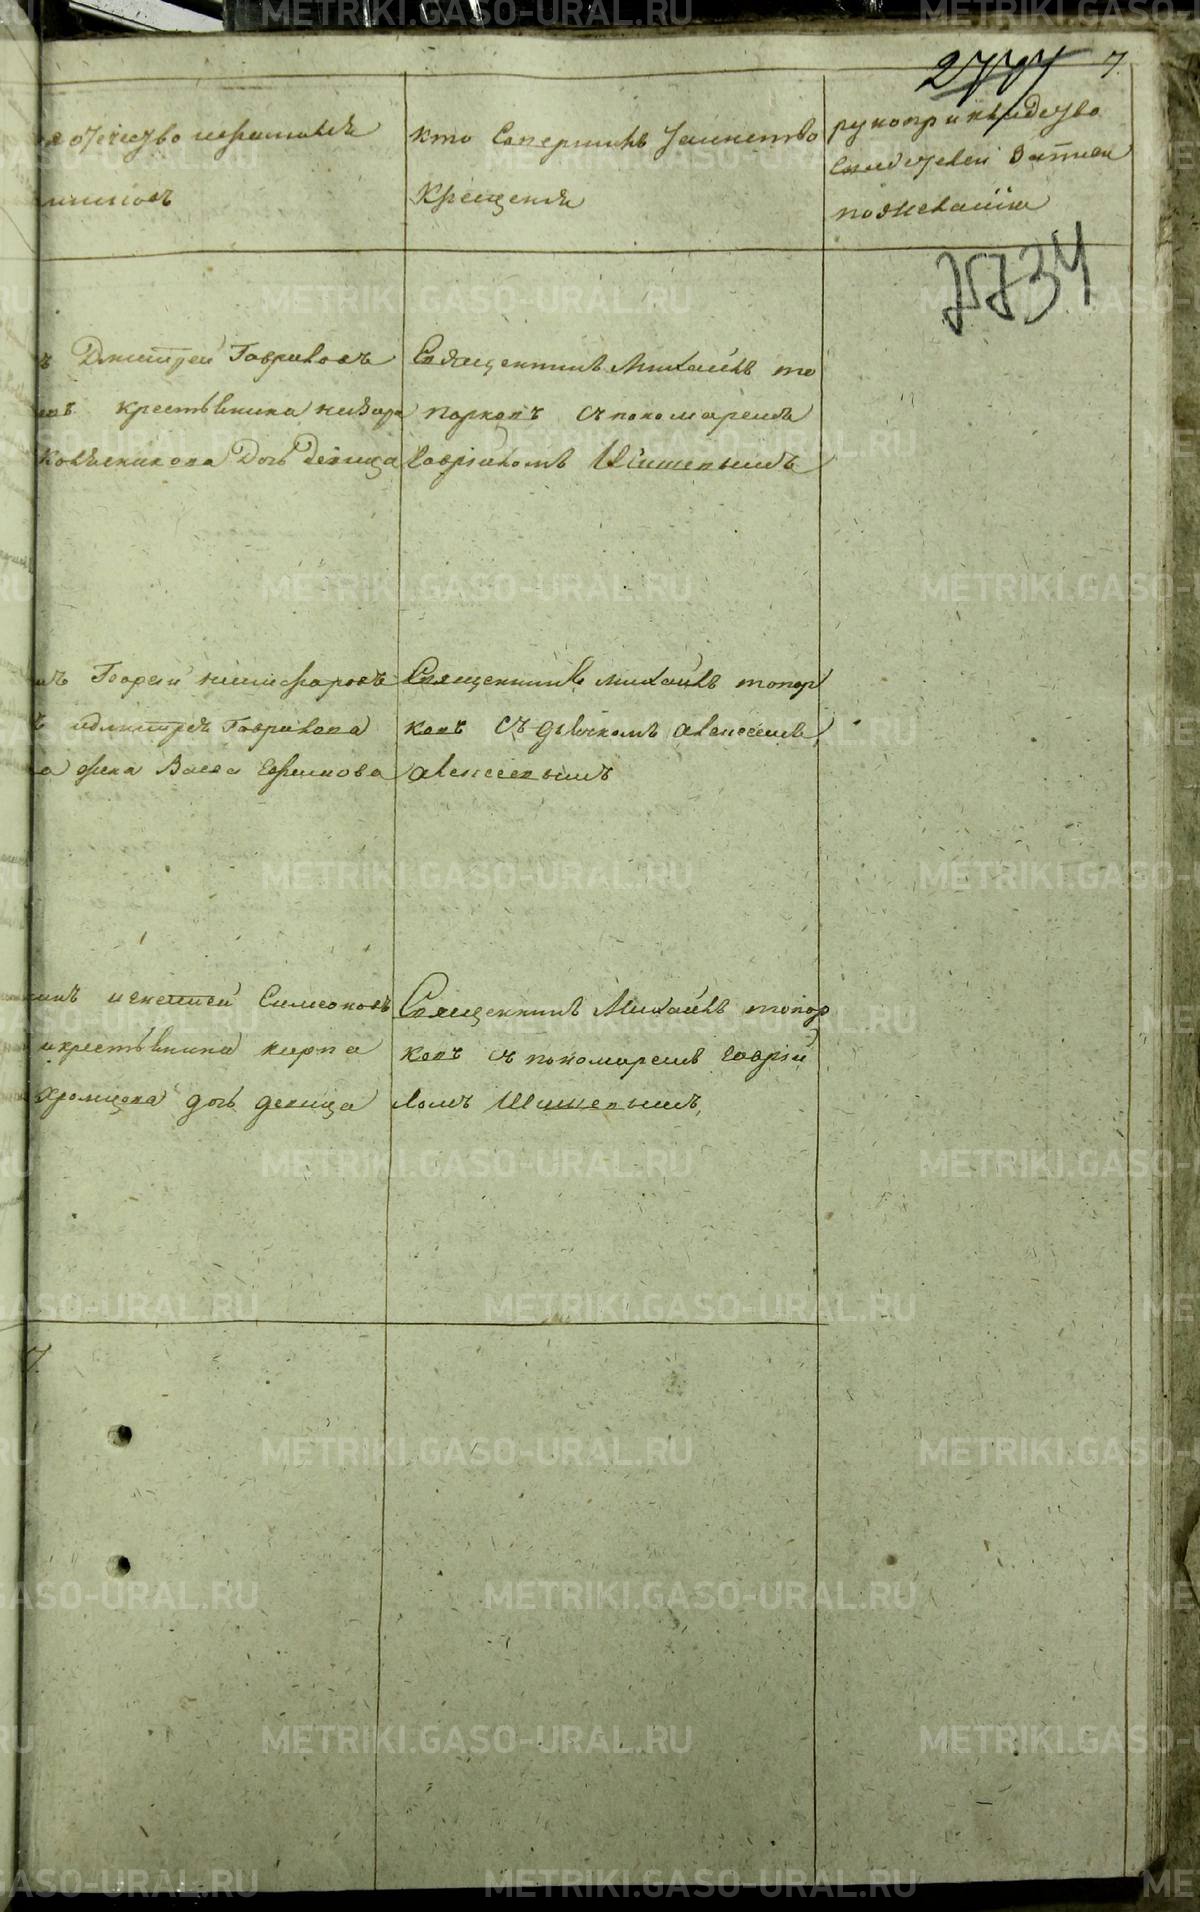 2777 7.
отечество ифамилия
кто Совершилъ Таинство
Крещения
рукоприкладство
Свидетелей Записи
пожеланию
2734
ъ Дмитрей Гавриловъ
крестьянина назара
Колесникова Дочь Девица
Священникъ Михаилъ то
порковъ съ пономаремъ
Гавриломъ Шишевымъ
Георгий никифоровъ
идмитрея Гаврилова
а жена Васса Ефимова
Священникъ михаилъ топор
ковъ съ дьячкомъ алексеемъ
алексеевымъ
Симеоновъ
икрестьянина карпа
Хромцова дочь девица
Священникъ Михаилъ топор
ковъ съ пономаремъ гаврии
ломъ Шишевымъ,